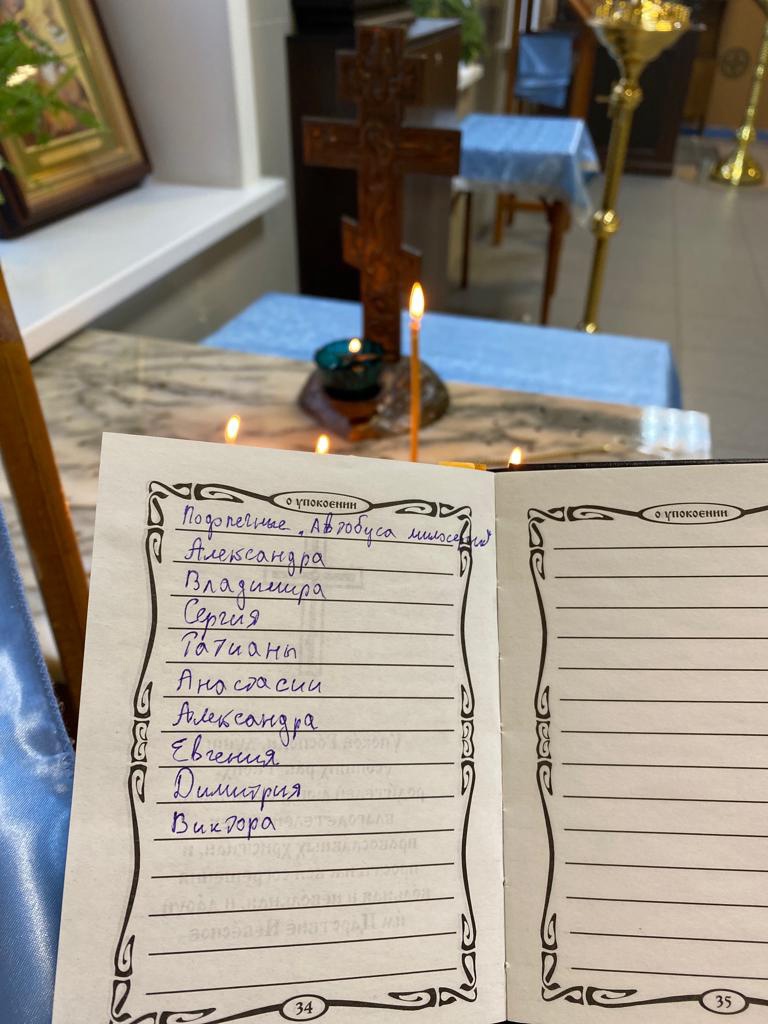 о упокоении
Подопечные „Автобуса милосердия"
Александра
Владимира
Сергия
Татианы
Анастасии
Александра
Евгения
Димитрия
Виктора
34
о упокоении
35